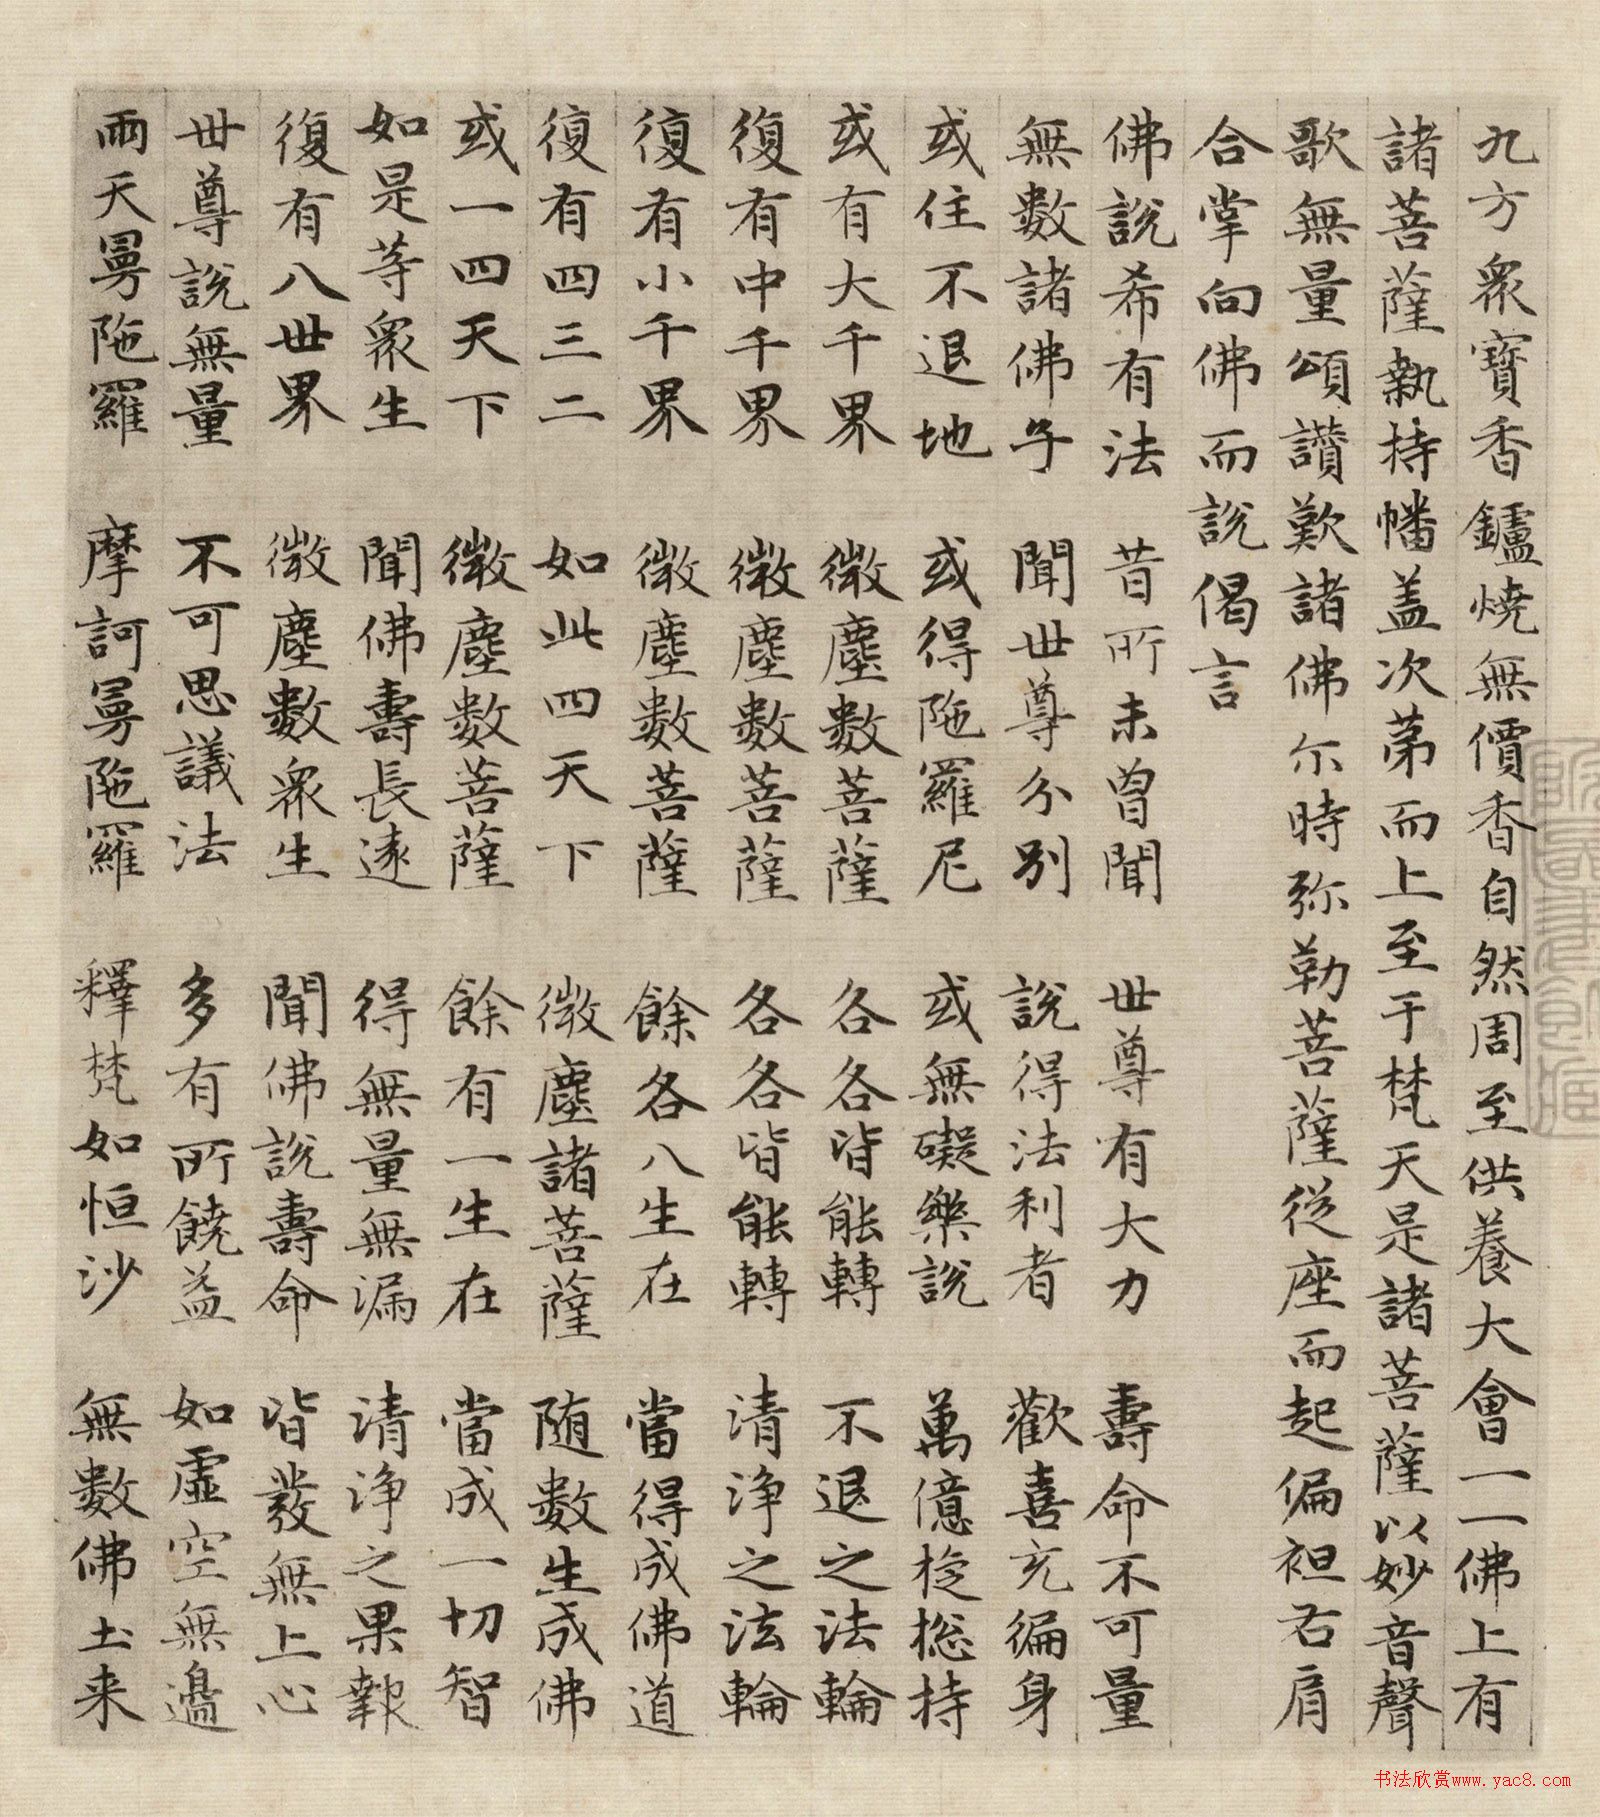 九方衆寶香鑪燒無價香自然周至供養大會一一佛上有
諸菩薩執持幡盖次苐而上至于梵天是諸菩薩以妙音聲
歌無量頌讃歎諸佛尒時弥勒菩薩從座而起偏袒右肩
合掌向佛而說偈言
佛說希有法 昔所未曾聞 世尊有大力 壽命不可量
無數諸佛子 聞世尊分別 說得法利者 歡喜充徧身
或住不退地 或得陁羅尼 或無礙樂說 萬億旋揔持
或有大千界 微塵數菩薩 各各皆能轉 不退之法輪
復有中千界 微塵數菩薩 各各皆能轉 清淨之法輪
復有小千界 微塵數菩薩 餘各八生在 當得成佛道
復有四三二 如此四天下 微塵諸菩薩 随數生成佛
或一四天下 微塵數菩薩 餘有一生在 當成一切智
如是等衆生 聞佛壽長遠 得無量無漏 清淨之果報
復有八世界 微塵數衆生 聞佛說壽命 皆發無上心
世尊說無量 不可思議法 多有所饒益 如虛空無邊
雨天曼陁羅 摩訶曼陁羅 釋梵如恒沙 無數佛土来
书法欣赏www.yac8.com